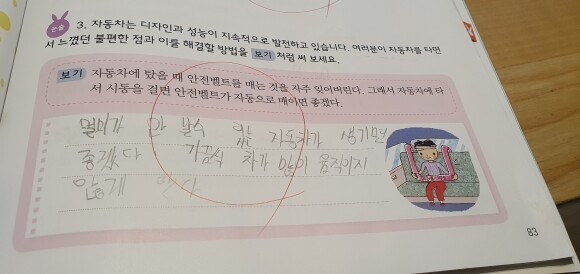 논술 3. 자동차는 디자인과 성능이 지속적으로 발전하고 있습니다. 여러분이 자동차를 타면
서 느꼈던 불편한 점과 이를 해결할 방법을 보기 처럼 써 보세요.
보기 자동차에 탔을 때 안전벨트를 매는 것을 자주 잊어버린다. 그래서 자동차에 타
서 시동을 걸면 안전벨트가 자동으로 매이면 좋겠다.
멀미가 안 자동차가 생기면
좋겠다 가끔식 차가 많이 움직이지
않게
83